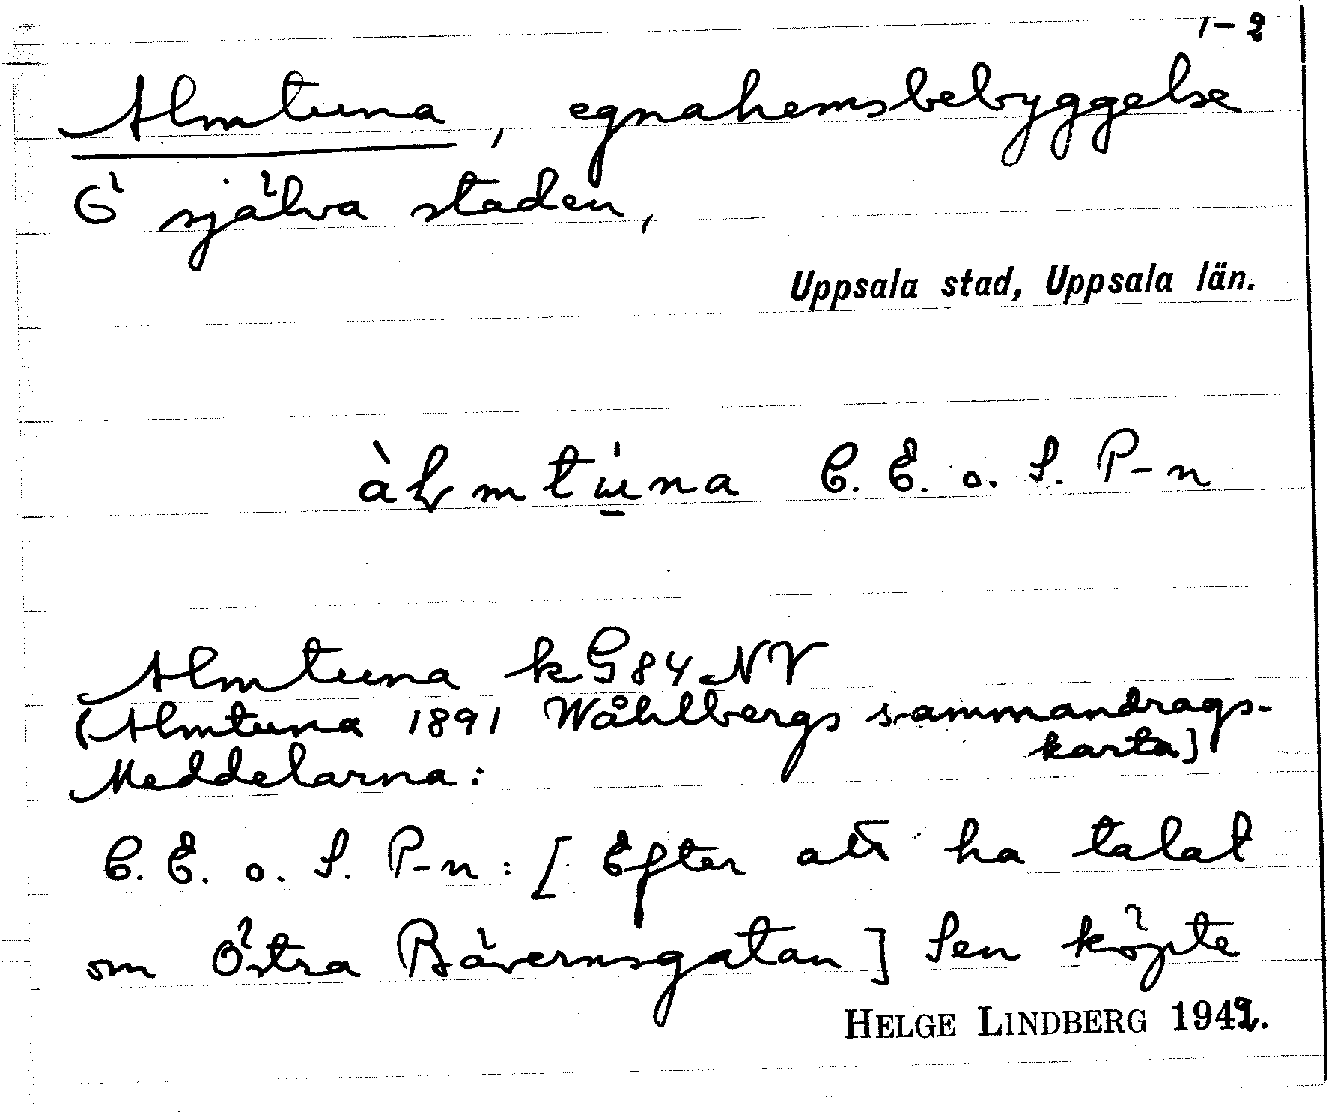 1-2
Almtuna, egnahemsbebyggelse
Ö själva staden,
Uppsala stad, Uppsala län.
àlmtu̱na C. E. o. S. P-n
Almtuna kG84NV
(Almtuna 1891 Wåhlbergs sammandrags-
karta]
Meddelarna:
C. E. o. S. P-n: [Efter att ha talat
om Östra Bävernsgatan] Sen köpte
HELGE LINDBERG 1942.